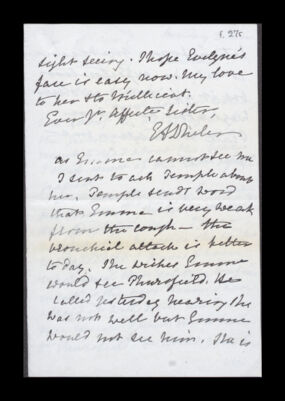 f. 276
sight seeing. I hope Evelyne's
face is easy now. My love
to her & to Millicent.
Ever Yr. Affecte. Sister,
as Emma cannot see me
I sent to ask Temple about
her. Temple sends word
that Emma is very weak
from the cough – the
bronchial attack is better
today. She wishes Emma
would see Thurofield. He
called yesterday hearing she
was not well but Emma
would not see him. She is